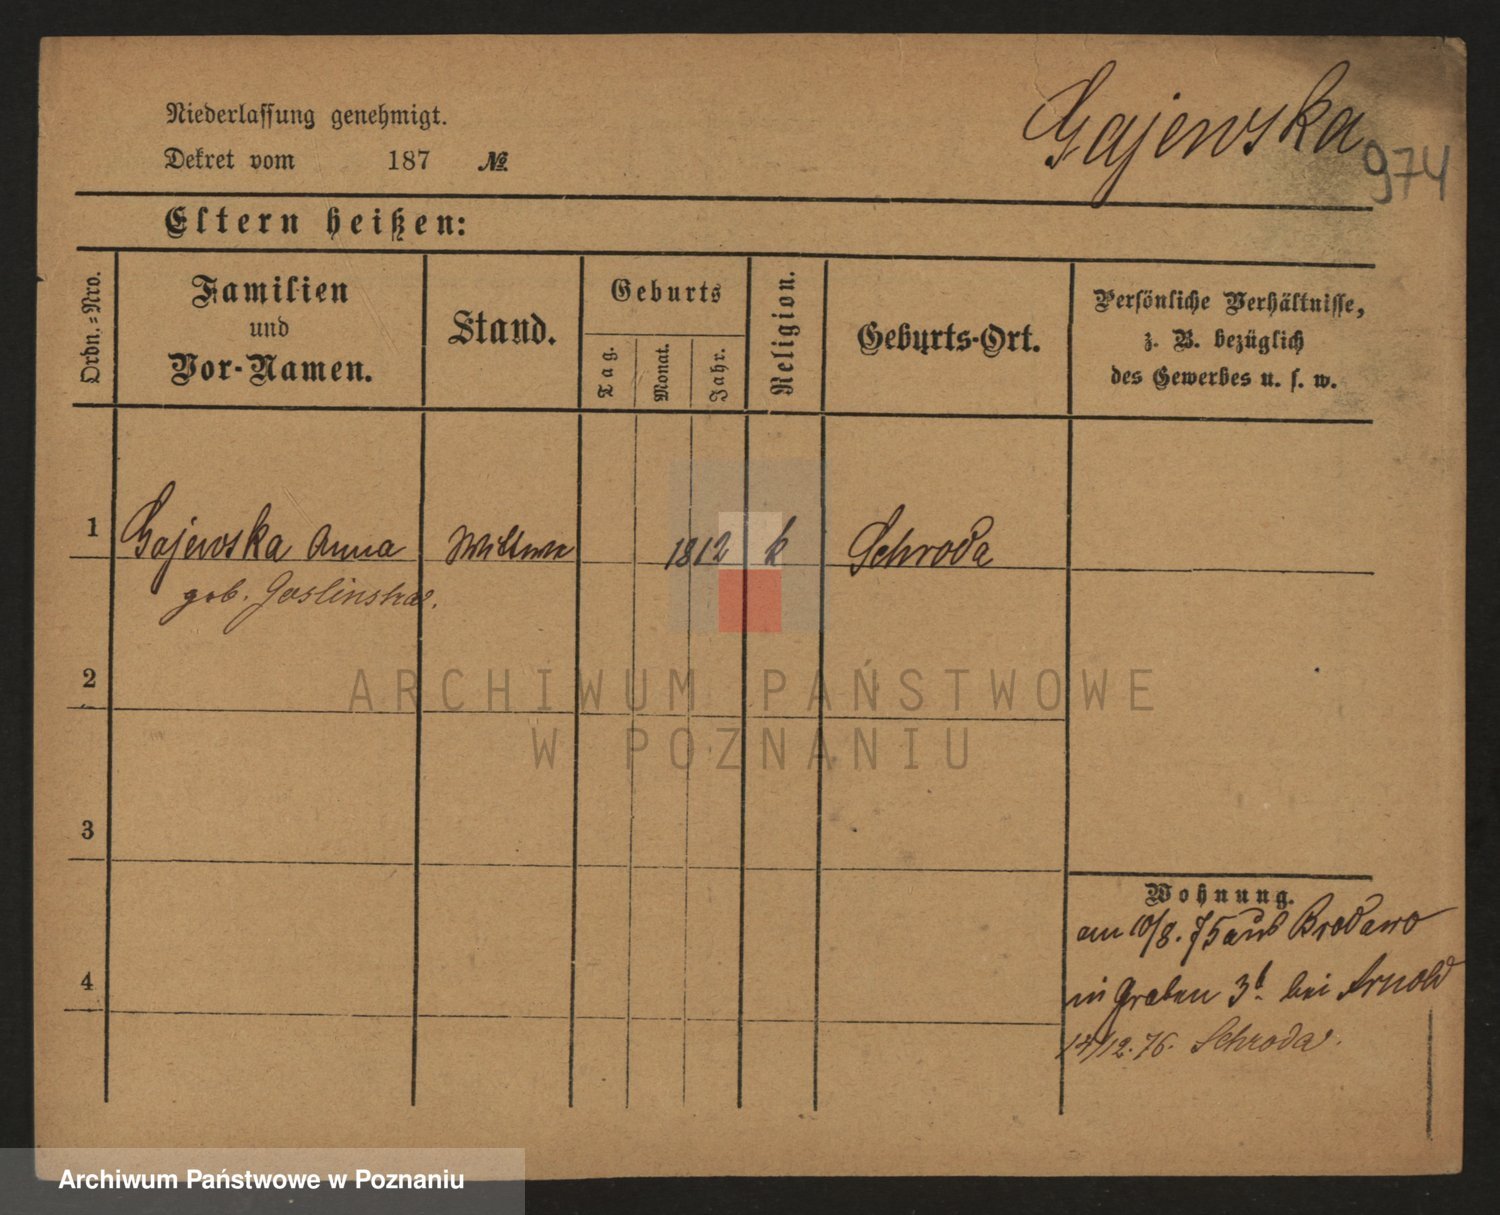 Niederlassung genehmigt.
Gajewska
974
Dekret vom 187 №
Eltern heißen:
Ordn.-Nro.
Familien
und
Vor-Namen.
Stand.
Geburts
Tag.
Monat.
Jahr.
Religion.
Geburts-Ort.
Persönliche Verhältnisse,
z. B. bezüglich
des Gewerbes u. s. w.
1 Gajewska Anna Wittwe 1812 k Schroda
geb. Goslinska.
2
ARCHIWUM PAŃSTWOWE
W POZNANIU
3
4
Wohnung.
am 10/8. 75 aus Brodowo
in Graben 3b. bei Arnold
14/12. 76. Schroda.
Archiwum Państwowe w Poznaniu